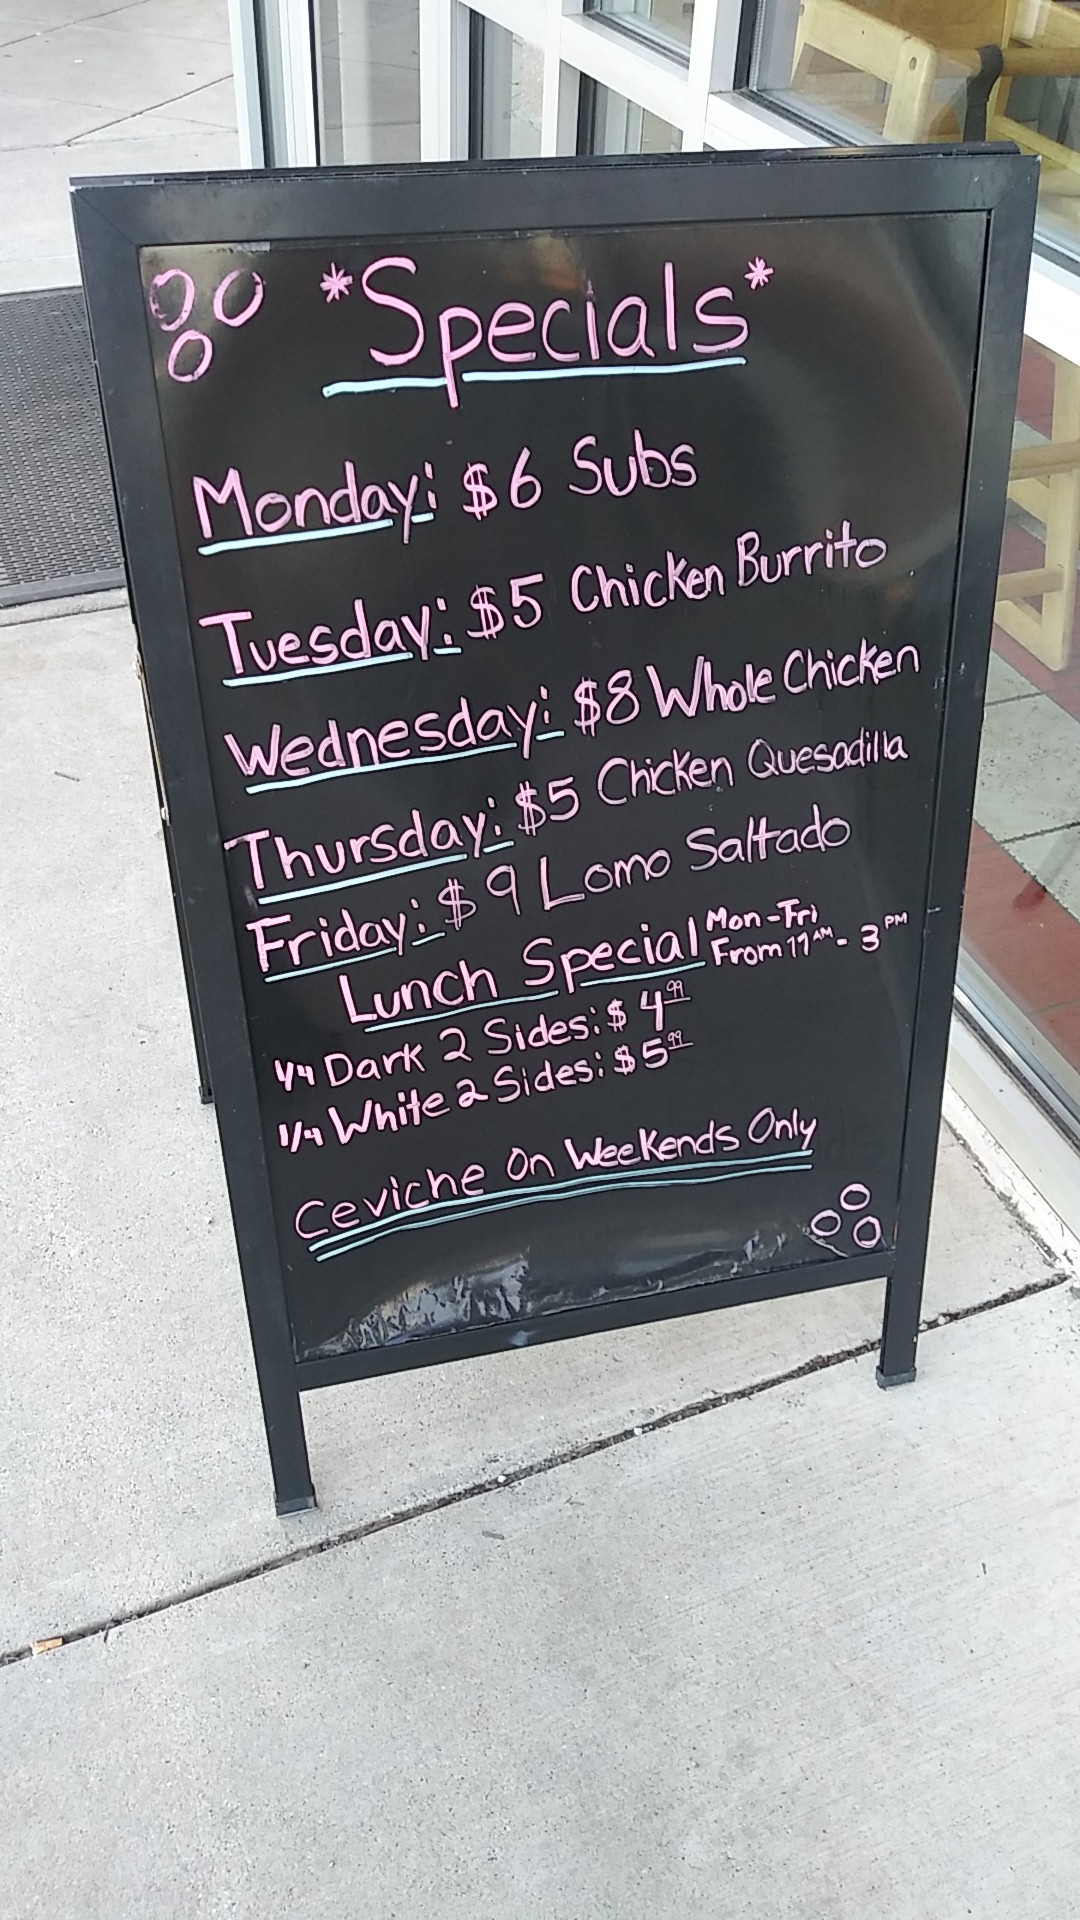 *Specials*
Monday: $6 Subs
Tuesday: $5 Chicken Burrito
Wednesday: $8 Whole Chicken
Thursday: $5 Chicken Quesadilla
Friday: $9 Lomo Saltado
Lunch Special Mon-Fri
From 11AM - 3PM
1/4 Dark 2 Sides: $4.99
1/4 White 2 Sides: $5.99
Ceviche On Weekends Only